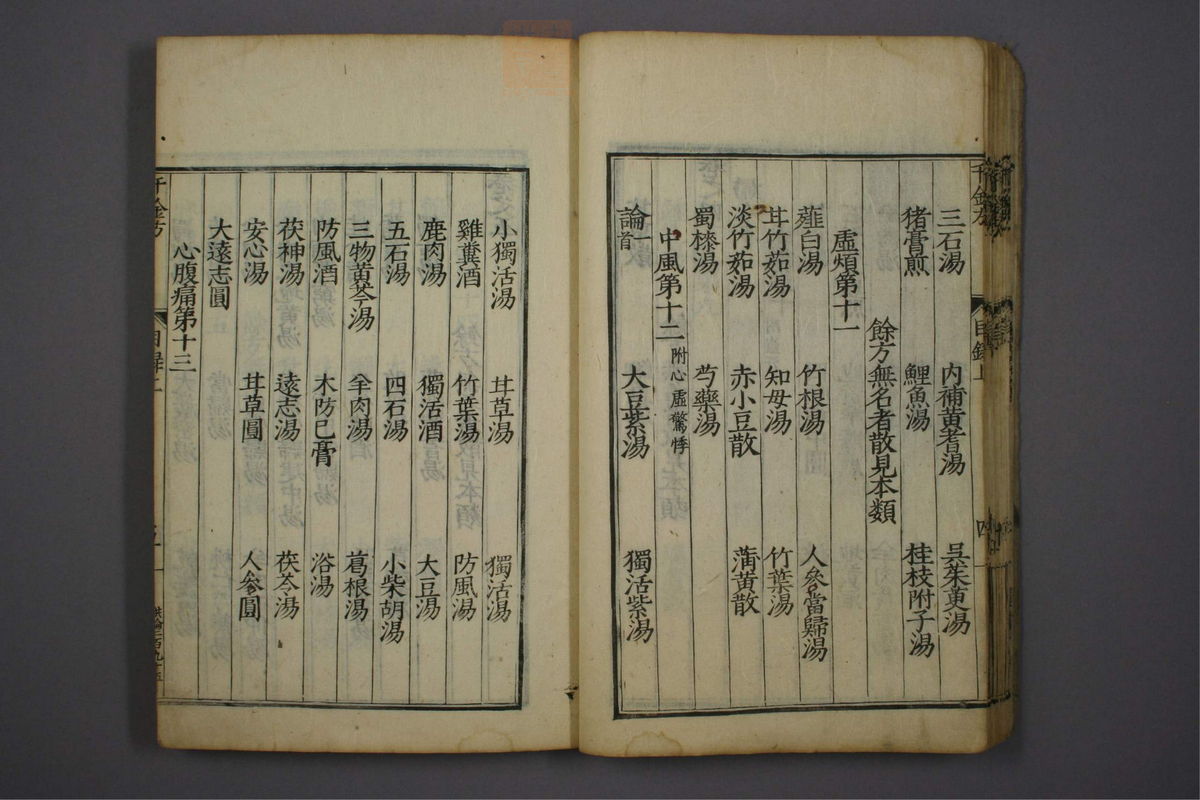 三石湯　內補黃耆湯　吳茱萸湯
猪膏煎　鯉魚湯　桂枝附子湯
餘方無名者散見本類
虛煩第十一
薤白湯　竹根湯　人參當歸湯
甘竹茹湯　知母湯　竹葉湯
淡竹茹湯　赤小豆散　蒲黃散
蜀漆湯　芍藥湯
中風第十二 附心虛驚悸
論一首　大豆紫湯　獨活紫湯
小獨活湯　甘草湯　獨活湯
雞糞酒　竹葉湯　防風湯
鹿肉湯　獨活酒　大豆湯
五石湯　四石湯　小柴胡湯
三物黃芩湯　羊肉湯　葛根湯
防風酒　木防已膏　浴湯
茯神湯　遠志湯　茯苓湯
安心湯　甘草圓　人參圓
大遠志圓
心腹痛第十三
千金方　目錄上　四
千金方　目錄上